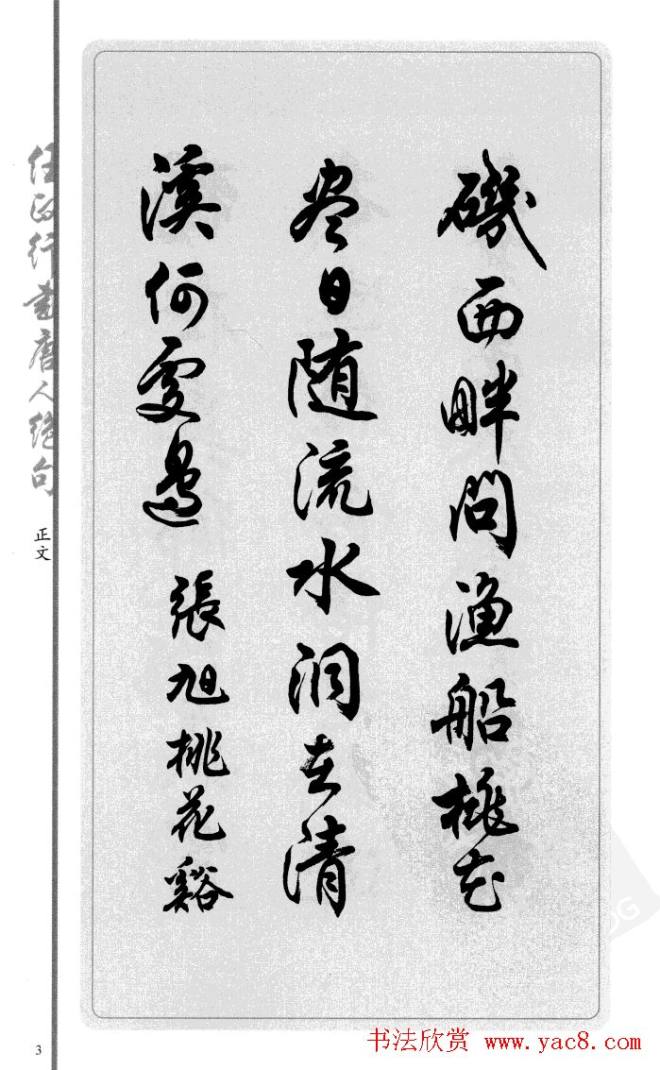 磯西畔問漁船桃花
尽日随流水洞在清
溪何處邊
張旭桃花谿
任政行書唐人絕句
正文
3
书法欣赏 www.yac8.com